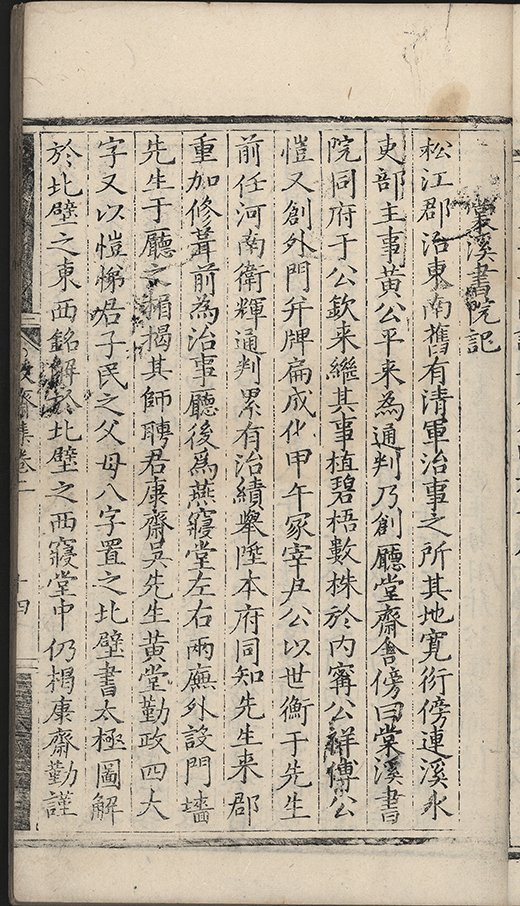 棠溪書院記
松江郡治東南舊有清軍治事之所其地寬衍傍連溪水
吏部主事黃公平来為通判乃創廳堂齋舍傍曰棠溪書
院同府于公欽来繼其事植碧梧數株於内甯公祥傅公
愷又創外門并牌扁成化甲午冢宰尹公以世衡于先生
前任河南衛輝通判累有治績擧陞本府同知先生来郡
重加修葺前為治事廳後爲燕寢堂左右兩廡外設門墻
先生于廳之楣揭其師聘君康齋吳先生黃堂勤政四大
字又以愷悌君子民之父母八字置之北壁書太極圖解
於北壁之東西銘解於北壁之西寢堂中仍榻康齋勤謹
齋集卷二
十四